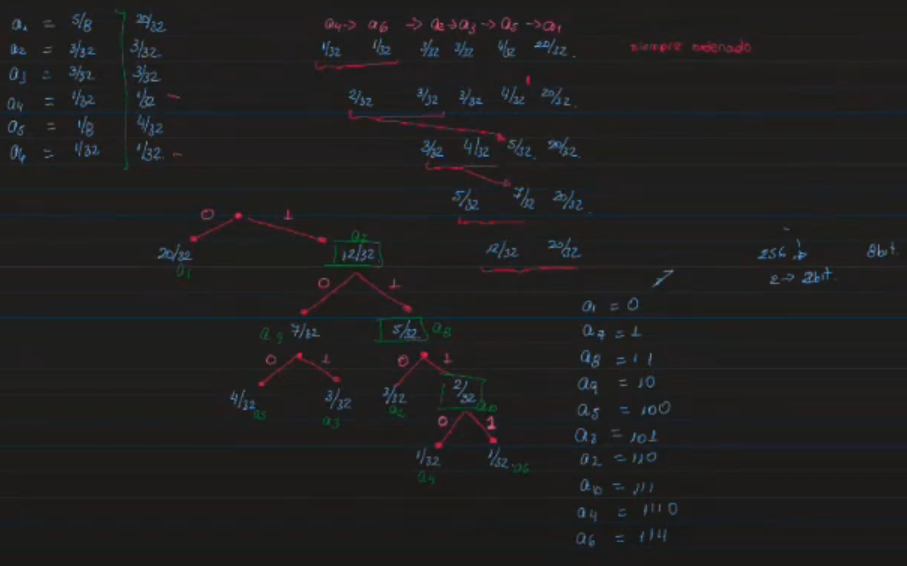 a₁ = 5/8 20/32
a₂ = 3/32 3/32
a₃ = 3/32 3/32
a₄ = 1/32 1/32
a₅ = 1/8 4/32
a₆ = 1/32 1/32
a₄ → a₆ → a₂ → a₃ → a₅ → a₁
1/32 1/32 3/32 3/32 4/32 20/32
siempre ordenado
2/32 3/32 3/32 4/32 20/32
3/32 4/32 5/32 20/32
5/32 7/32 20/32
12/32 20/32
256 8bit
2 → 8bit
0 1
20/32 a₁
a₇ 12/32
0 1
a₉ 7/32 5/32 a₈
0 1 0 1
4/32 a₅ 3/32 a₃ 3/32 a₂ 2/32 a₁₀
0 1
1/32 a₄ 1/32 a₆
a₁ = 0
a₇ = 1
a₈ = 11
a₉ = 10
a₅ = 100
a₃ = 101
a₂ = 110
a₁₀ = 111
a₄ = 1110
a₆ = 1111